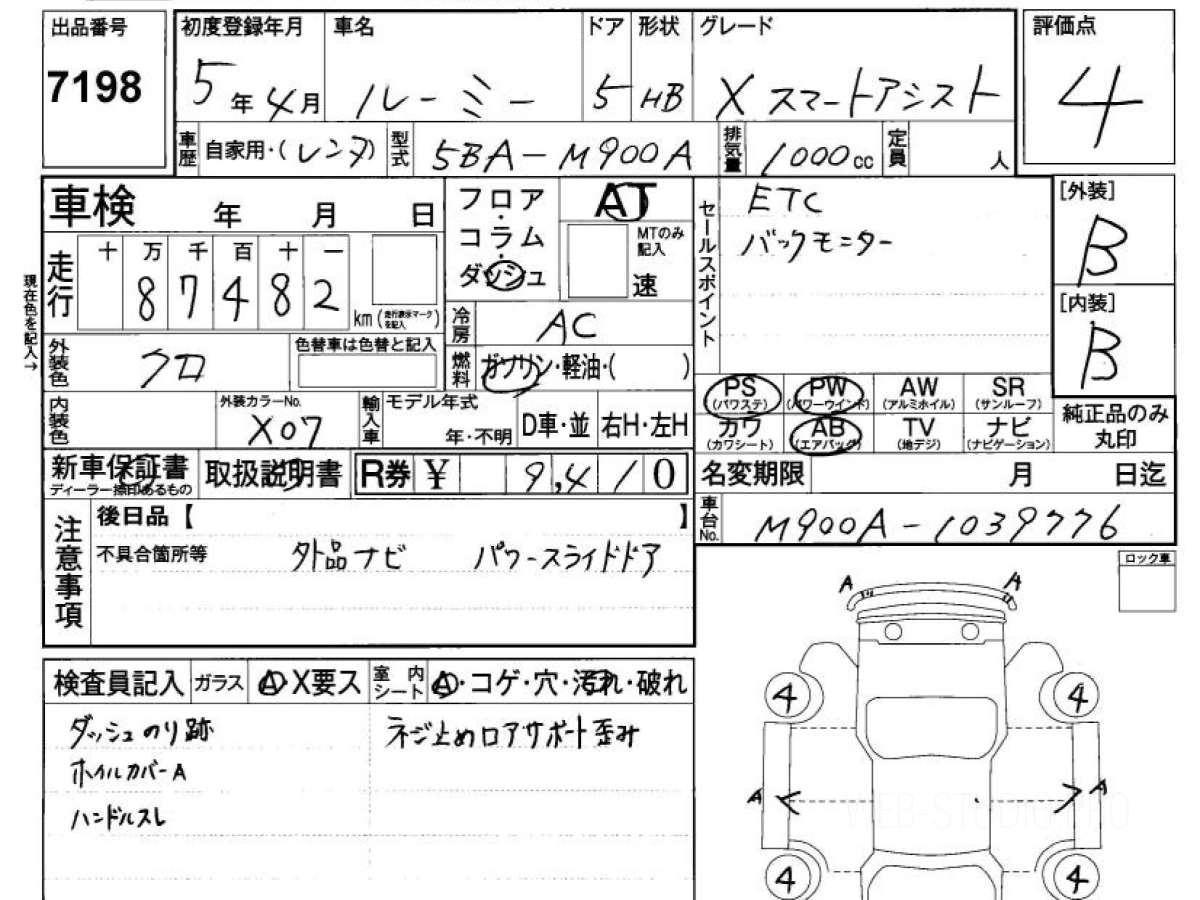 出品番号 初度登録年月 車名 ドア 形状 グレード 評価点
7198 5年4月 ルーミー 5 HB X スマートアシスト 4
車歴 自家用・(レンタ) 型式 5BA-M900A 排気量 1000cc 定員 人
車検 年 月 日
フロア・コラム・ダッシュ AT MTのみ記入 速
セールスポイント ETC
バックモニター
[外装] B
[内装] B
現在色を記入→
走行 十 万 千 百 十 一
8 7 4 8 2 km(走行表示マークを記入)
冷房 AC
外装色 クロ 色替車は色替と記入
燃料 ガソリン・軽油・( )
PS (パワステ) PW (パワーウインド) AW (アルミホイル) SR (サンルーフ)
カワ (カワシート) AB (エアバッグ) TV (地デジ) ナビ (ナビゲーション)
純正品のみ丸印
内装色 外装カラーNo. X07 輸入車 モデル年式 年・不明 D車・並 右H・左H
新車保証書 ディーラー捺印あるもの 取扱説明書 R券 ¥ 9,410
名変期限 月 日迄
車台No. M900A-1039776
注意事項 後日品【 】
不具合箇所等 外品ナビ パワースライドドア
ロック車
A A
検査員記入 ガラス A・X要ス 室内シート A・コゲ・穴・汚れ・破れ
4 4
ダッシュのり跡 ネジ止めロアサポート歪み
ホイルカバーA
ハンドルスレ
A A
WEB-STUDIO.PRO
4 4